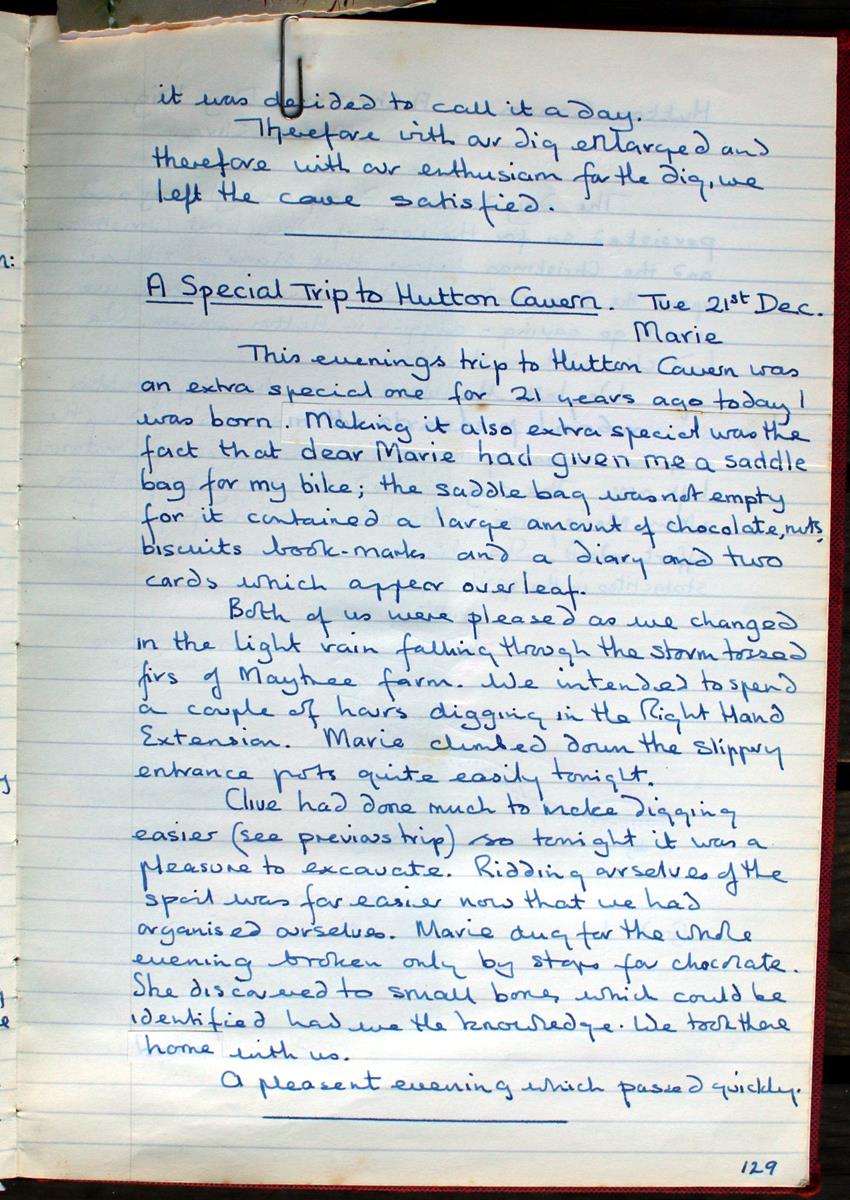 it was decided to call it a day.
Therefore with our dig enlarged and
therefore with our enthusiasm for the dig, we
left the cave satisfied.
A Special Trip to Hutton Cavern. Tue 21st Dec.
Marie
This evenings trip to Hutton Cavern was
an extra special one for 21 years ago today I
was born. Making it also extra special was the
fact that dear Marie had given me a saddle
bag for my bike; the saddle bag was not empty
for it contained a large amount of chocolate, nuts,
biscuits book-marks and a diary and two
cards which appear overleaf.
Both of us were pleased as we changed
in the light rain falling through the storm tossed
firs of Maytree farm. We intended to spend
a couple of hours digging in the Right Hand
Extension. Marie climbed down the slippery
entrance pots quite easily tonight.
Clive had done much to make digging
easier (see previous trip) so tonight it was a
pleasure to excavate. Ridding ourselves of the
spoil was far easier now that we had
organised ourselves. Marie dug for the whole
evening broken only by stops for chocolate.
She discovered to small bones which could be
identified had we the knowledge. We took these
home with us.
A pleasent evening which passed quickly.
129